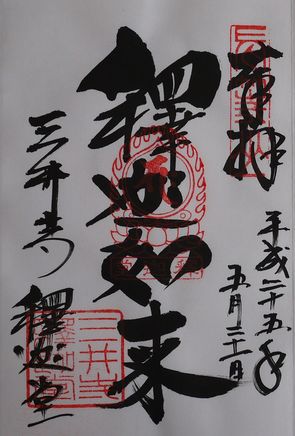 奉拝
平成二十五年
五月二十二日
釋迦如来
三井寺
釋迦堂
三井寺